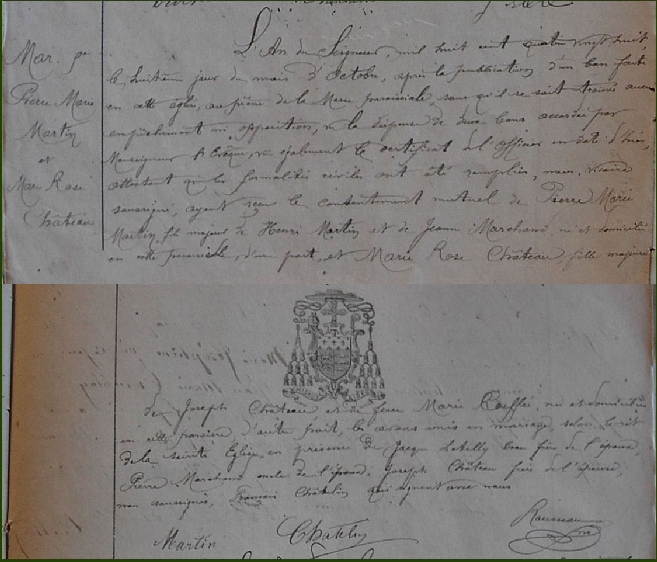 Mar. ge
Pierre Marie
Martin
et
Marie Rose
Château
L'An du Seigneur, mil huit cent quatre vingt huit,
le huitième jour du mois d'Octobre, après la publication d'un ban faite
en cette église, au prône de la Messe paroissiale, sans qu'il se soit trouvé aucun
empêchement ni opposition, vu la dispense de deux bans accordée par
Monseigneur l'Evêque, vu également le certificat de l'officier en date d'hier,
attestant que les formalités civiles ont été remplies, nous, vicaire
soussigné, ayant reçu le consentement mutuel de Pierre Marie
Martin, fils majeur de Henri Martin et de Jeanne Marchand, né et domicilié
en cette paroisse, d'une part, et Marie Rose Château fille majeure
de Joseph Château et de feue Marie, née et domiciliée
en cette paroisse d'autre part, les avons unis en mariage, selon le rit
de la Sainte Eglise, en présence de Jacques beau frère de l'époux,
Pierre Marchand oncle de l'époux, Joseph Château père de l'épouse,
non soussignés, François Châtelier qui signent avec nous
Martin
Rousseau